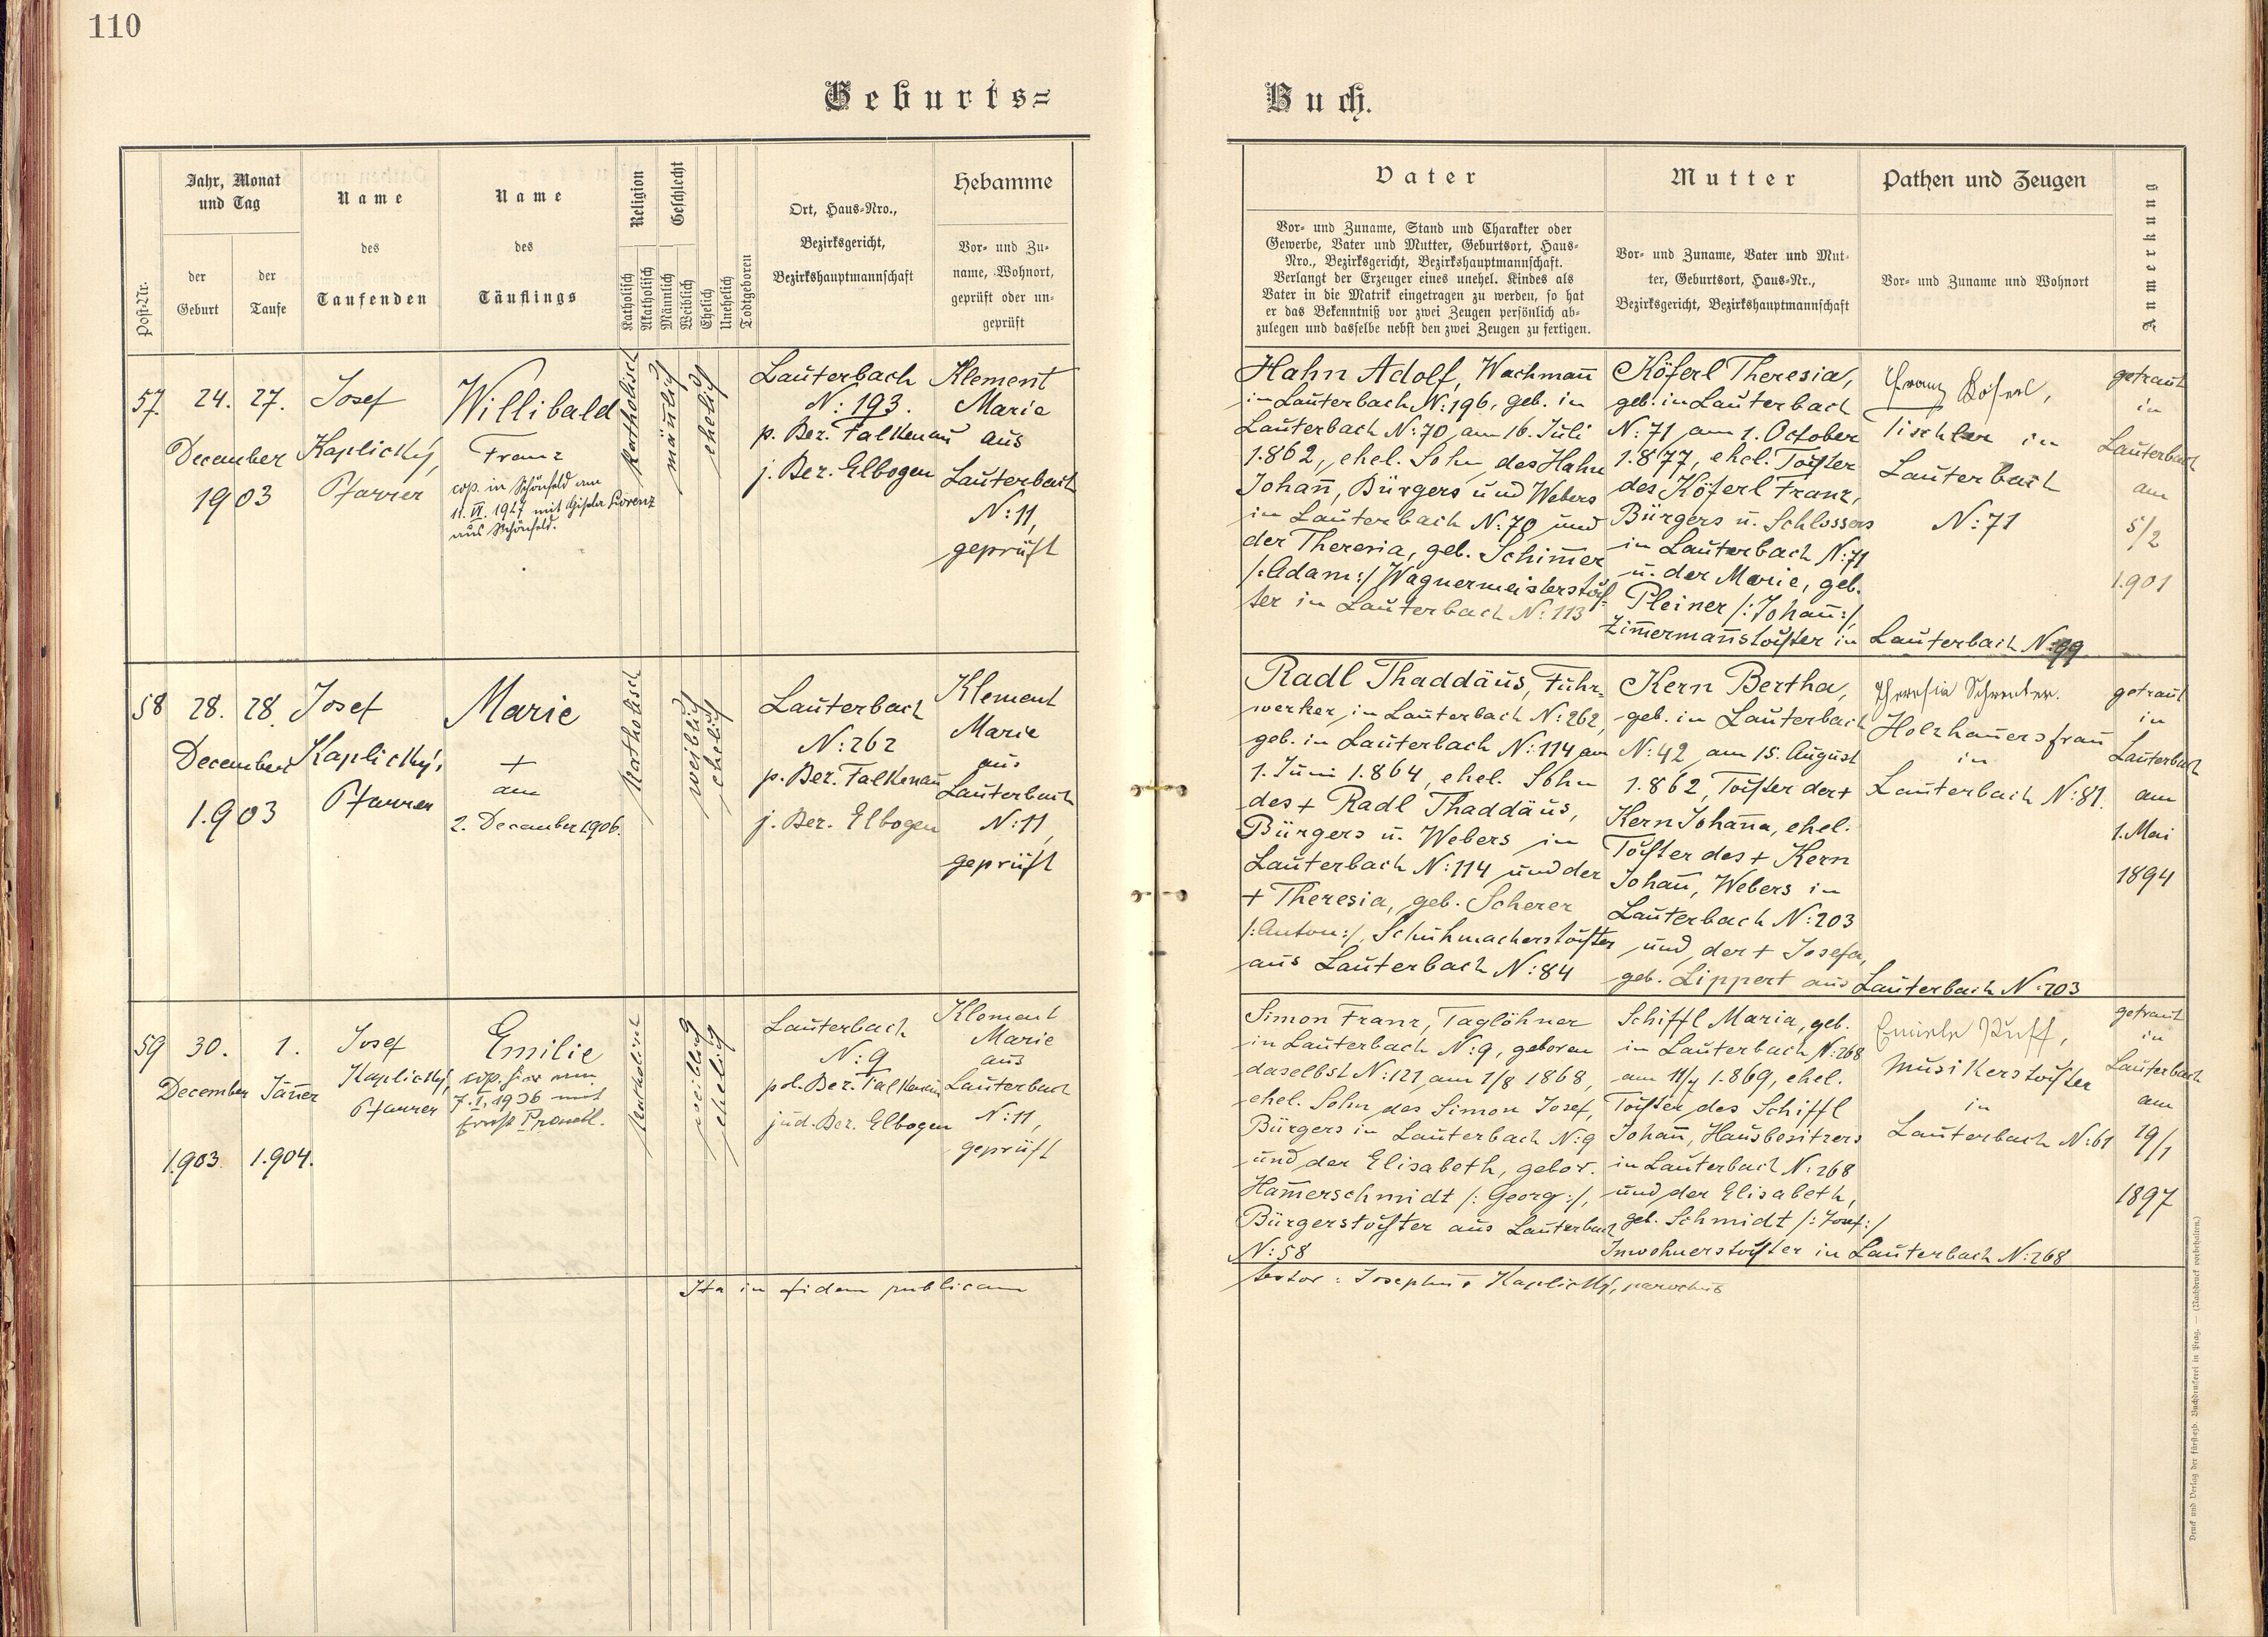 110
Geburts=
Buch.
Post-Nr.
Jahr, Monat
und Tag
der
Geburt
der
Taufe
Name
des
Taufenden
Name
des
Täuflings
Religion
Katholisch
Akatholisch
Geschlecht
Männlich
Weiblich
Ehelich
Unehelich
Todtgeboren
Ort, Haus-Nro.,
Bezirksgericht,
Bezirkshauptmannschaft
Hebamme
Vor- und Zu-
name, Wohnort,
geprüft oder un-
geprüft
Vater
Vor- und Zuname, Stand und Charakter oder
Gewerbe, Vater und Mutter, Geburtsort, Haus-
Nro., Bezirksgericht, Bezirkshauptmannschaft.
Verlangt der Erzeuger eines unehel. Kindes als
Vater in die Matrik eingetragen zu werden, so hat
er das Bekenntniß vor zwei Zeugen persönlich ab-
zulegen und dasselbe nebst den zwei Zeugen zu fertigen.
Mutter
Vor- und Zuname, Vater und Mut-
ter, Geburtsort, Haus-Nr.,
Bezirksgericht, Bezirkshauptmannschaft
Pathen und Zeugen
Vor- und Zuname und Wohnort
Anmerkung
57
24.
27.
December
1903
Josef
Kaplický,
Pfarrer
Willibald
Franz
cop. in Schönfeld am
11. VI. 1927 mit Gisela Lorenz
aus Schönfeld.
katholisch
mänlich
ehelich
Lauterbach
N: 193.
p. Bez. Falkenau
j. Bez. Elbogen
Klement
Marie
aus
Lauterbach
N: 11,
geprüft
Hahn Adolf, Wachmañ
in Lauterbach N: 196, geb. in
Lauterbach N: 70 am 16. Juli
1.862, ehel. Sohn des Hahn
Johañ, Bürgers und Webers
in Lauterbach N: 70 und
der Theresia, geb. Schim̄er
/:Adam:/ Wagnermeisterstoch-
ter in Lauterbach N: 113
Köferl Theresia,
geb. in Lauterbach
N: 71 am 1. October
1.877, ehel. Tochter
des Köferl Franz,
Bürgers u. Schlossers
in Lauterbach N: 71
u. der Marie, geb.
Pleiner /:Johañ:/,
Zim̄ermañstochter in Lauterbach N: 99
Franz Köferl,
Tischler in
Lauterbach
N: 71
getraut
in
Lauterbach
am
5/2
1.901
58
28.
28.
December
1.903
Josef
Kaplický,
Pfarrer
Marie
+
am
2. December 1906.
katholisch
weiblich
ehelich
Lauterbach
N: 262
p. Bez. Falkenau
j. Bez. Elbogen
Klement
Marie
aus
Lauterbach
N: 11,
geprüft
Radl Thaddäus, Fuhr-
werker in Lauterbach N: 262,
geb. in Lauterbach N: 114 am
1. Juni 1.864, ehel. Sohn
des + Radl Thaddäus,
Bürgers u. Webers in
Lauterbach N: 114 und der
+ Theresia, geb. Scherer
/:Anton:/, Schuhmacherstochter
aus Lauterbach N: 84
Kern Bertha,
geb. in Lauterbach
N: 42 am 15. August
1.862, Tochter der +
Kern Johana, ehel.
Tochter des + Kern
Johañ, Webers in
Lauterbach N: 203
und der + Josefa,
geb. Lippert aus Lauterbach N: 203
Theresia
Holzhauersfrau
in
Lauterbach N: 81.
getraut
in
Lauterbach
am
1. Mai
1894
59
30.
1.
December
Jäner
1.903.
1.904.
Josef
Kaplický,
Pfarrer
Emilie
cop. hier am
7. I. 1936 mit
Ernst
katholisch
weiblich
ehelich
Lauterbach
N: 9
pol. Bez. Falkenau
jud. Bez. Elbogen
Klement
Marie
aus
Lauterbach
N: 11,
geprüft
Simon Franz, Taglöhner
in Lauterbach N: 9, geboren
daselbst N: 121 am 1/8 1868,
ehel. Sohn des Simon Josef,
Bürgers in Lauterbach N: 9
und der Elisabeth, gebor.
Ham̄erschmidt /: Georg :/,
Bürgerstochter aus Lauterbach
N: 58
Schiffl Maria, geb.
in Lauterbach N: 268
am 11/7 1.869, ehel.
Tochter des Schiffl
Johañ, Hausbesitzers
in Lauterbach N: 268
und der Elisabeth,
geb. Schmidt /: Josef :/
Inwohnerstochter in Lauterbach N: 268
Musikerstochter
in
Lauterbach N: 61
getraut
in
Lauterbach
am
19/1
1897
Ita in fidem publicam
testor: Josephus Kaplický, parochus
Druck und Verlag der fürst-ezb. Buchdruckerei in Prag. — (Nachdruck vorbehalten.)